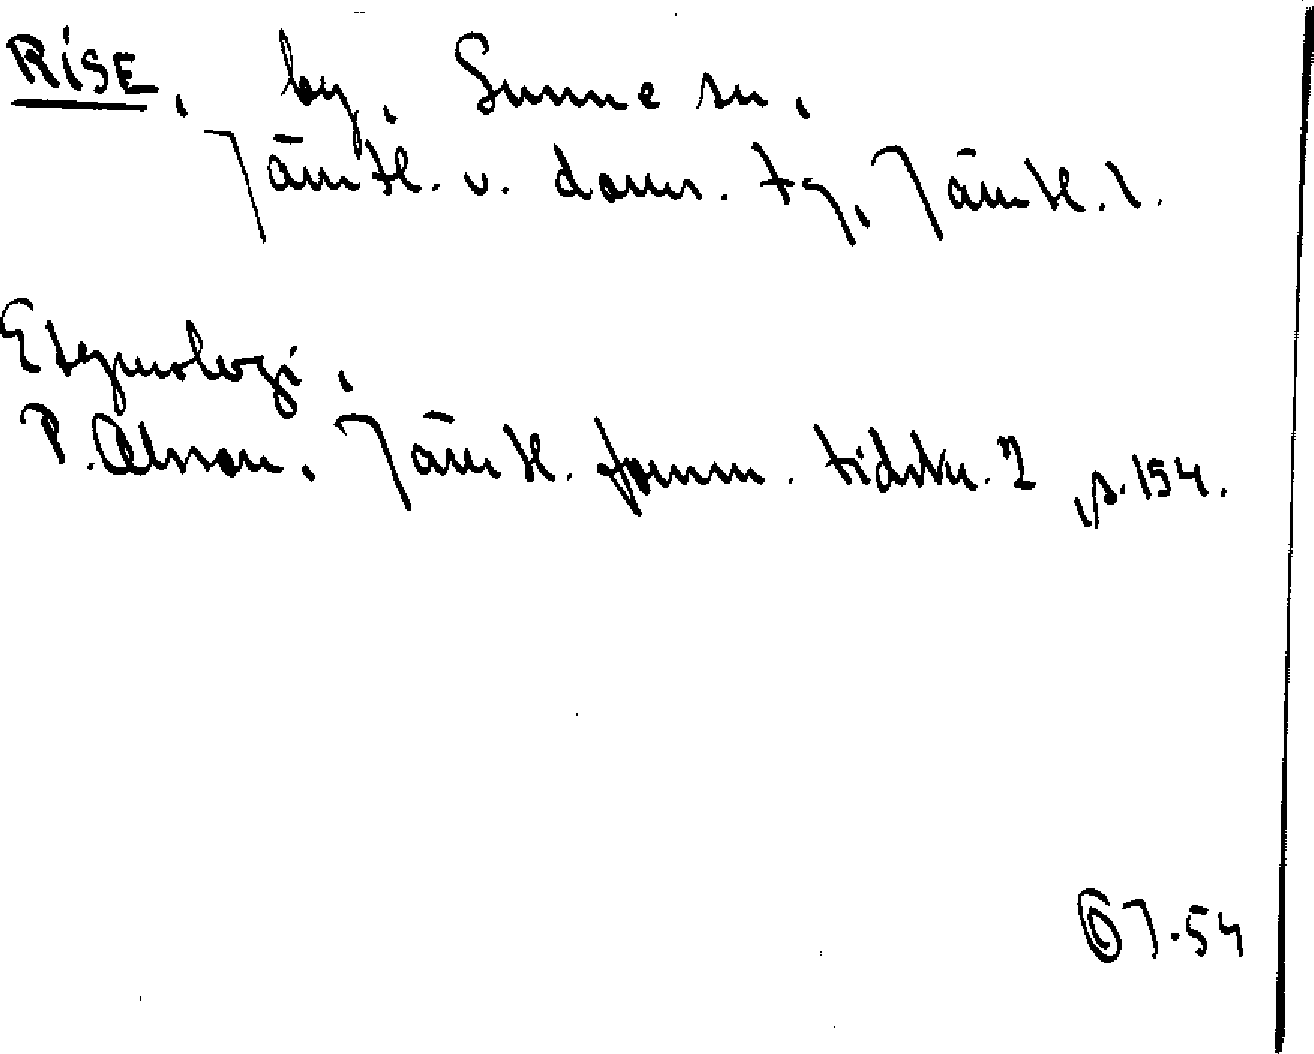 RISE, by, Sunne sn,
Jämtl. v. doms. tg, Jämtl. l.
Etymologi,
P. Olsson, Jämtl. fornm. tidskr. 2, s. 154.
7.54